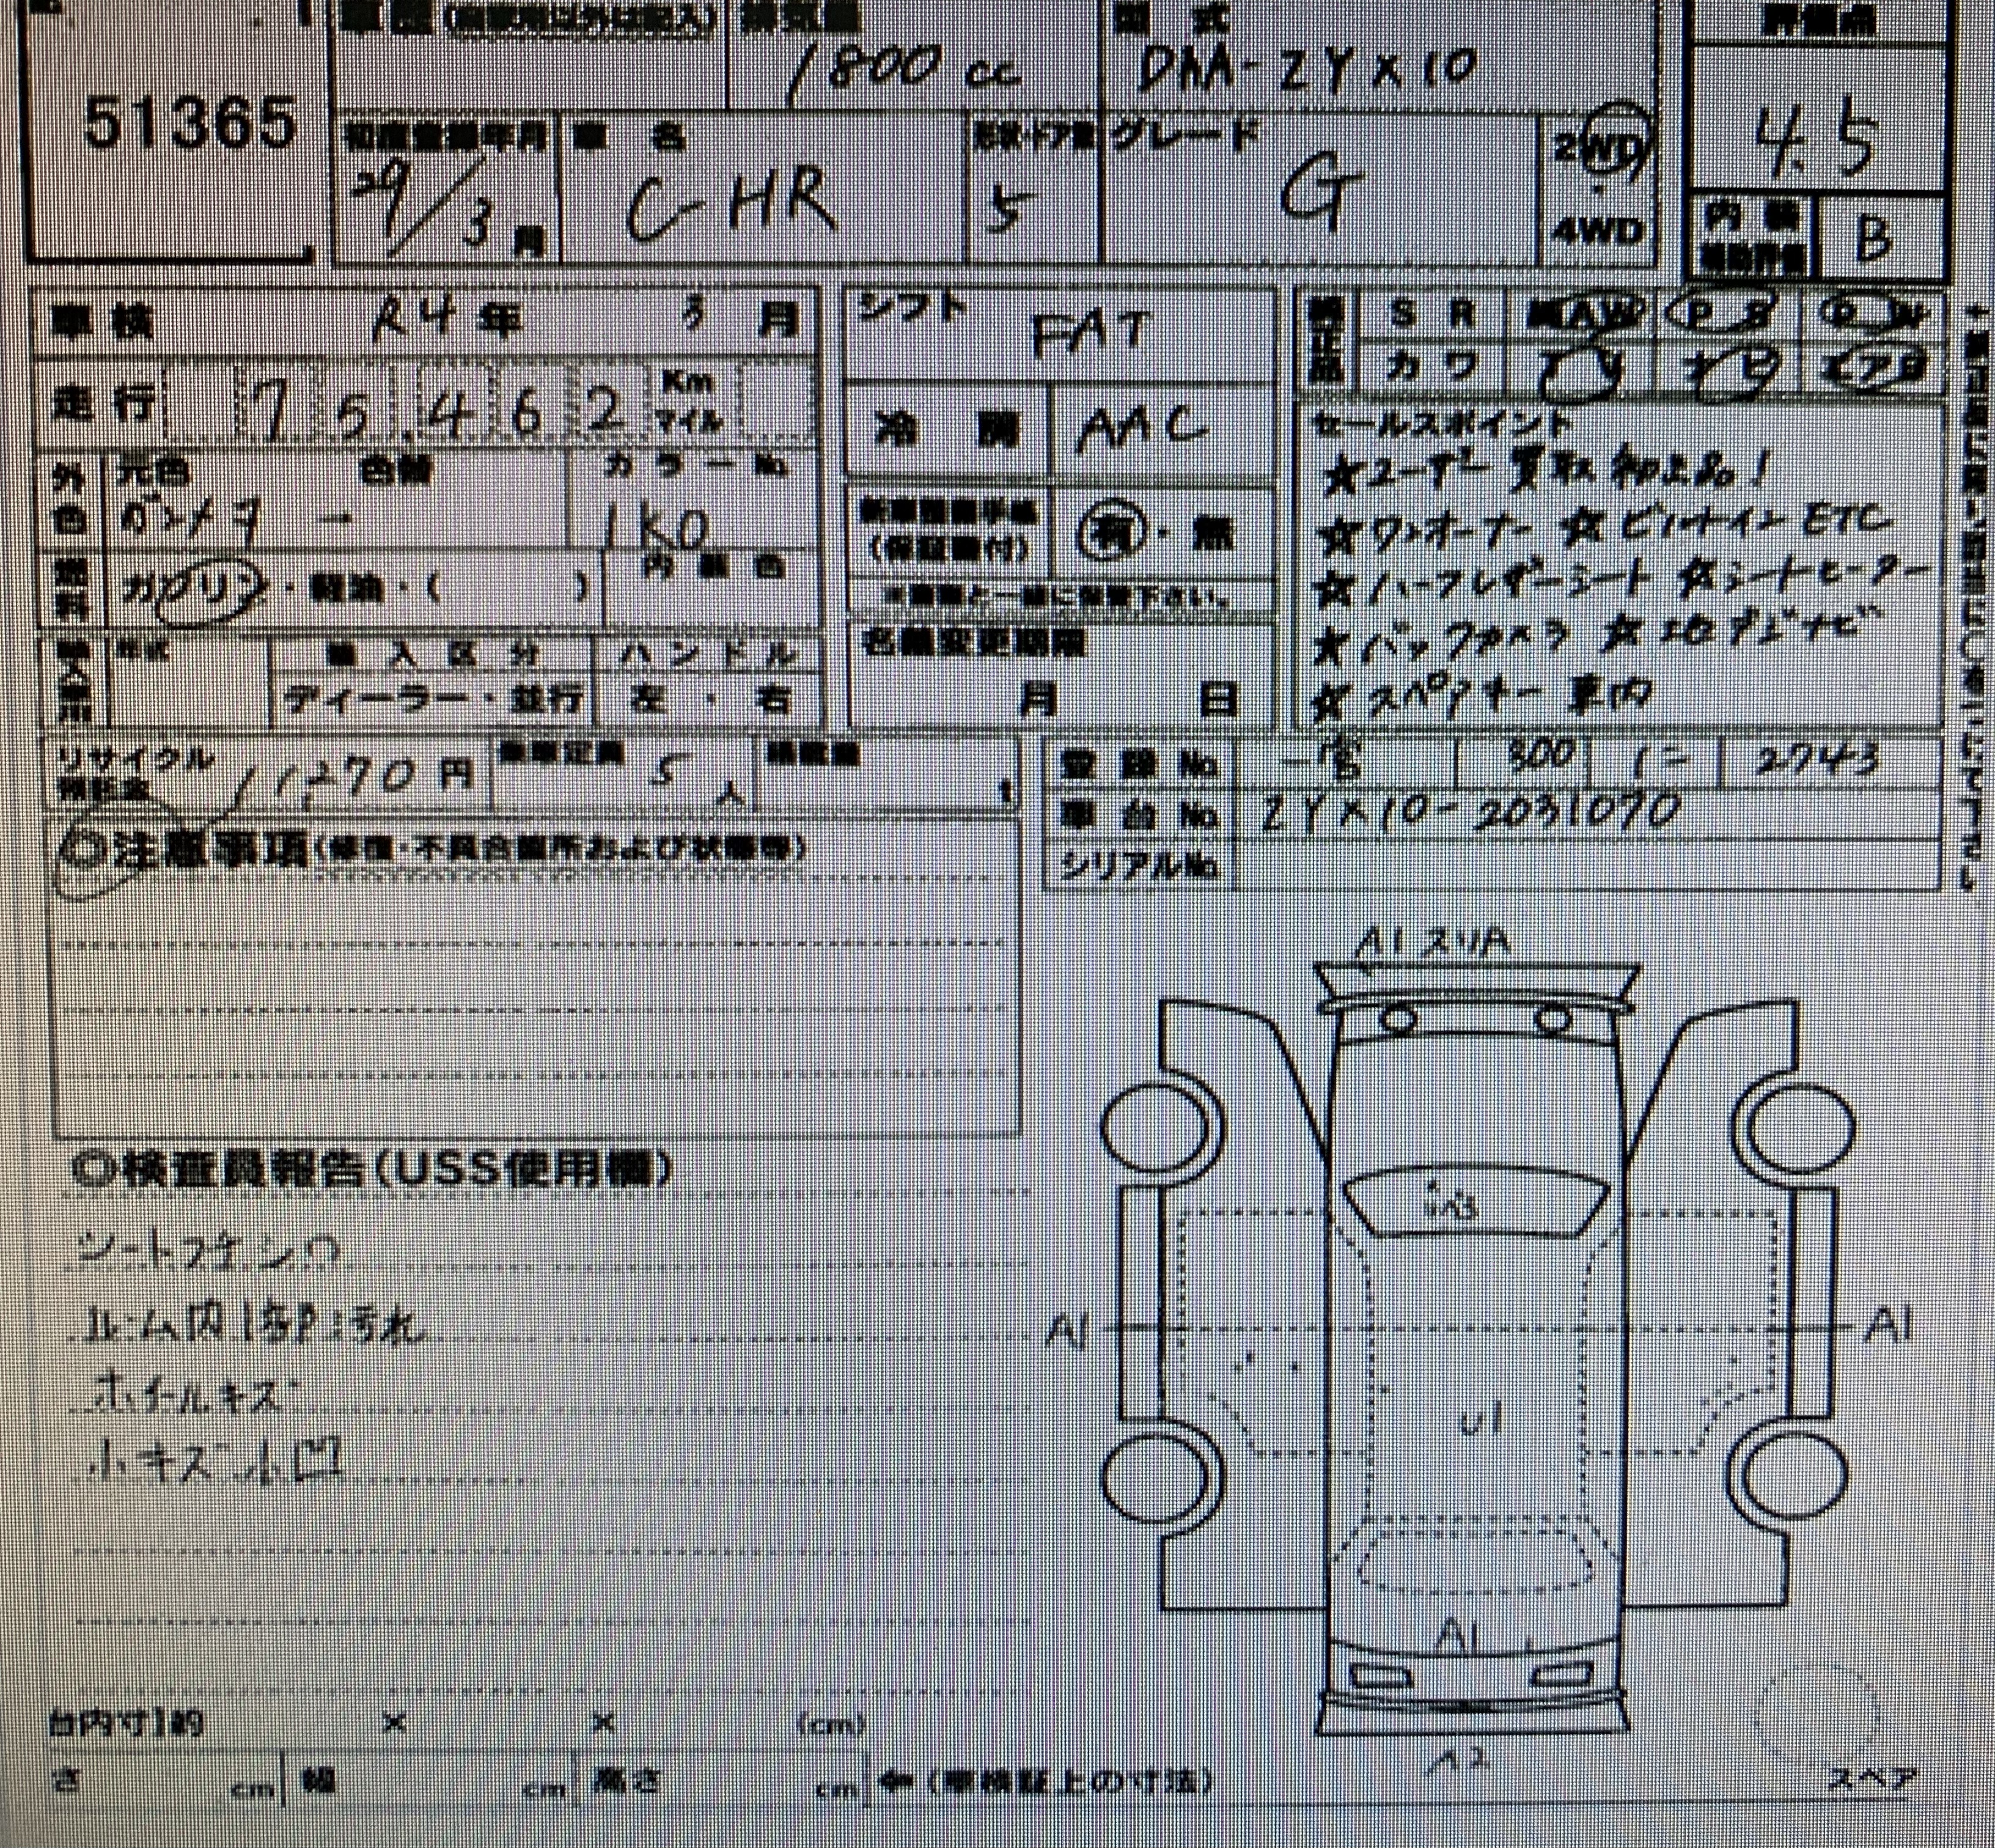 車歴(自家用以外は記入) 排気量 型式 評価点
51365 1800cc DAA-ZYX10 4.5
初度登録年月 車名 形状・ドア数 グレード 2WD・4WD
29/3月 C-HR 5 G
内装 B
車検 R4年 3月 シフト FAT SR AW PS PW
走行 75,462 Km マイル カワ
冷房 AAC セールスポイント
外色 元色 色替 カラーNo.
ガンメタ → 1K0
★ユーザー買取 初上品!
(保証書付) 有・無 ★ワンオーナー ★ビルトインETC
燃料 ガソリン・軽油・( ) 内装色
★ハーフレザーシート ★シートヒーター
※書類と一緒に保管下さい。
名義変更期限 ★バックカメラ ★地デジナビ
輸入区分 ハンドル
ディーラー・並行 左・右 月 日 ★スペアキー車内
リサイクル預託金 11,270円 乗車定員 5人 積載量 t
登録No. 一宮 300 に 2743
車台No. ZYX10-2031070
◎注意事項(修復・不具合箇所および状態等)
シリアルNo.
A1 スリA
◎検査員報告(USS使用欄)
シートスケ シワ
ルーム内1部汚れ
A1 A1
ホイールキズ
U1
小キズ小凹
A1
台内寸1的 × × (cm)
A2
さ cm 幅 cm 高さ cm ←(車検証上の寸法)
スペア